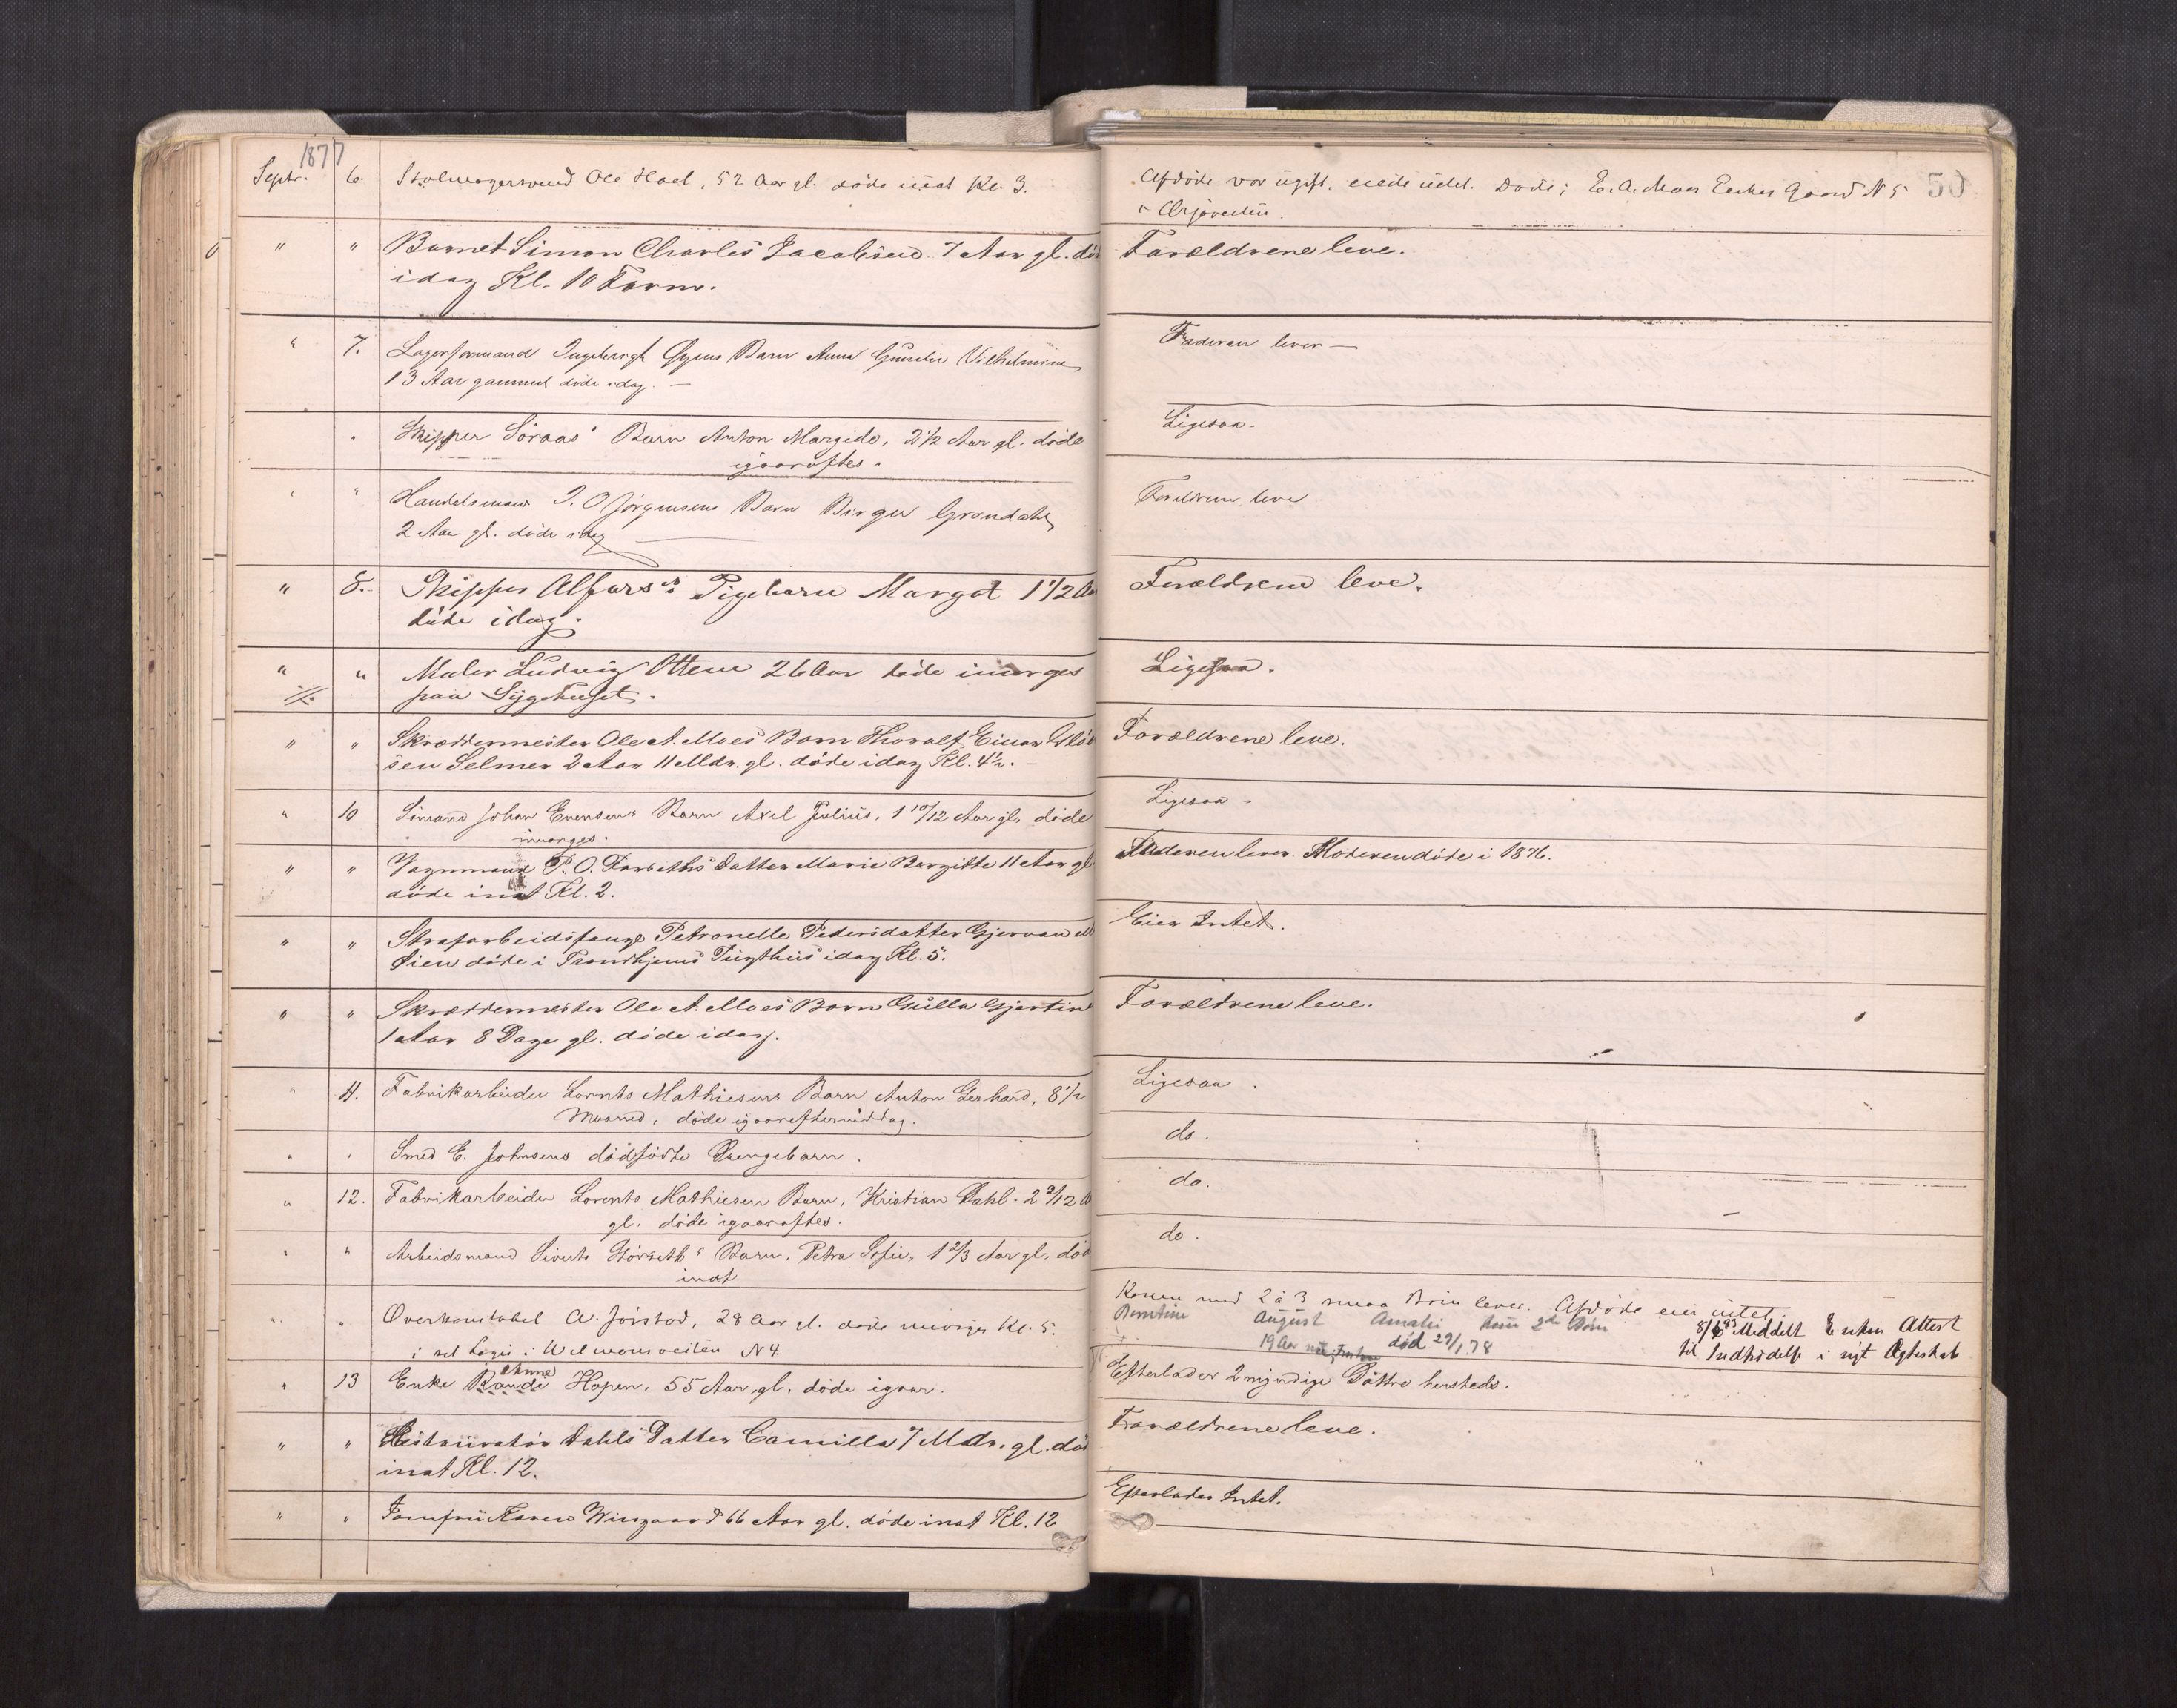 1877
Septr. 6. Stolmagersvend Ole Hoel, 52 Aar gl. døde inat Kl. 3.
Afdøde var ugift, eiede intet. Døde i E. A. Moes Enkes Gaard N 5
50
i Ørjaveiten.
" " Barnet Simon Charles Jacobsen 7 Aar gl. dø
idag Kl. 10 Form.
Forældrene leve.
" 7. Lagerformand Ingebrigt Øyens Barn Anna Gunelie Vilhelmine
13 Aar gammel døde idag. —
Faderen lever —
Skipper Søraas' Barn Anton Margido, 2 1/2 Aar gl. døde
igaaraftes.
Ligesaa.
" " Handelsmand J. O. Jørgensens Barn Birger Grøndahl
2 Aar gl. døde idag
Forældrene leve
" 8. Skipper Alfarss Pigebarn Margot 1 1/2 Aa
døde idag.
Forældrene leve.
" " Maler Ludvig Ottem 26 Aar døde imorges
paa Sygehuset.
Ligesaa.
" " Skræddermester Ole A. Moes Barn Thoralf Einar
sen Selmer 2 Aar 11 Mdr. gl. døde idag Kl. 4 1/2. —
Forældrene leve.
" 10 Sömand Johan Evensens Barn Axel Julius, 1 10/12 Aar gl. døde
imorges.
Ligesaa
" " Vognmand P. O. Datter Marie Bergitte 11 Aar gl
døde inat Kl. 2.
Faderen lever. Moderen døde i 1876.
" " Strafarbeidsfange Petronelle Pedersdatter
Øien døde i Trondhjems Tugthus idag Kl. 5.
Eier Intet.
" " Skræddermester Ole A. Moes Barn Gulla Gjertine
1 Aar 8 Dage gl. døde idag.
Forældrene leve.
" 11. Fabrikarbeider Lornts Mathiesens Barn Anton Gerhard, 8 1/2
Maaned, døde igaareftermiddag.
Ligesaa.
" " Smed E. Johnsens dødfødte Drengebarn.
do.
" 12. Fabrikarbeider Lorents Mathiesens Barn, Kristian Dahl. 2 9/12 A
gl. døde igaaraftes.
do.
" " Arbeidsmand Sivert Barn, Petra Sofie, 1 2/3 Aar gl. død
inat
do.
" " Overkonstabel A. Jörstad, 28 Aar gl. døde imorges Kl. 5.
i sit Logis i Wermonsveiten N 4.
Konen med 2 à 3 smaa Børn lever. Afdøde eier intet.
August Amalie
19 Aar død 29/1 78
Meddelt Enken Attest
til Indtrædelse i nyt Ægteskab
" 13 Enke Randi Hopen, 55 Aar gl. døde igaar.
Anne
Efterlader 2 myndige Døttre hersteds.
" " Restauratør Dahls Datter Camilla 7 Mdr. gl. død
inat Kl. 12.
Forældrene leve.
" " Jomfru Karen Wingaard 66 Aar gl. døde inat Kl. 12
Efterlader Intet.